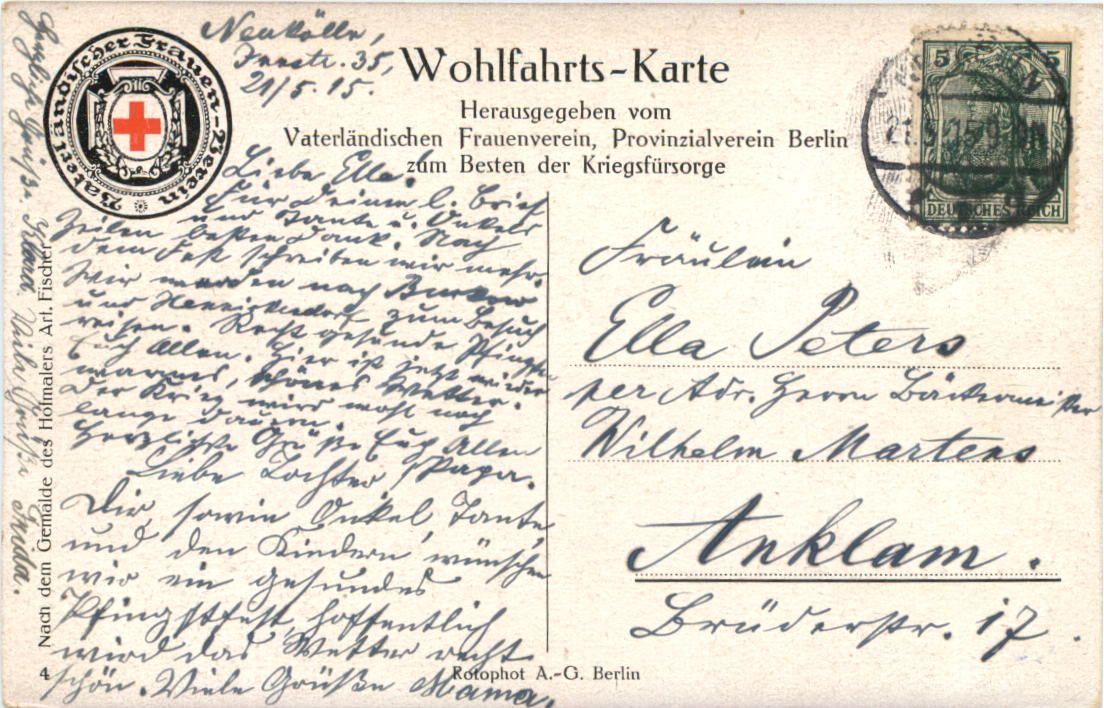 Vaterländischer Frauen-Verein
Neukölln,
35,
21/5.15.
Wohlfahrts-Karte
Herausgegeben vom
Vaterländischen Frauenverein, Provinzialverein Berlin
zum Besten der Kriegsfürsorge
Liebe Ella.
Für Deinen l. Brief
und Tante u. Onkels
Zeilen besten Dank. Nach
dem Fest schreiben wir mehr.
Wir werden nach
und zum Besuch
reisen. Recht gesunde
Euch Allen. Hier ist jetzt wieder
warmes, schönes Wetter.
Der Krieg wird wohl noch
lange dauern.
Herzliche Grüße Euch Allen
Papa.
Liebe Tochter
Dir, sowie Onkel, Tante,
und den Kindern wünschen
wir ein gesundes
Pfingstfest, hoffentlich
wird das Wetter recht
schön. Viele Grüße Mama.
Viele Grüße Frida.
Nach dem Gemälde des Hofmalers Art. Fischer
4
Rotophot A.-G. Berlin
5 5
DEUTSCHES REICH
Fräulein
Ella Peters
per Adr. Herrn Bäckermeister
Wilhelm Martens
Anklam.
Brüderstr. 17.